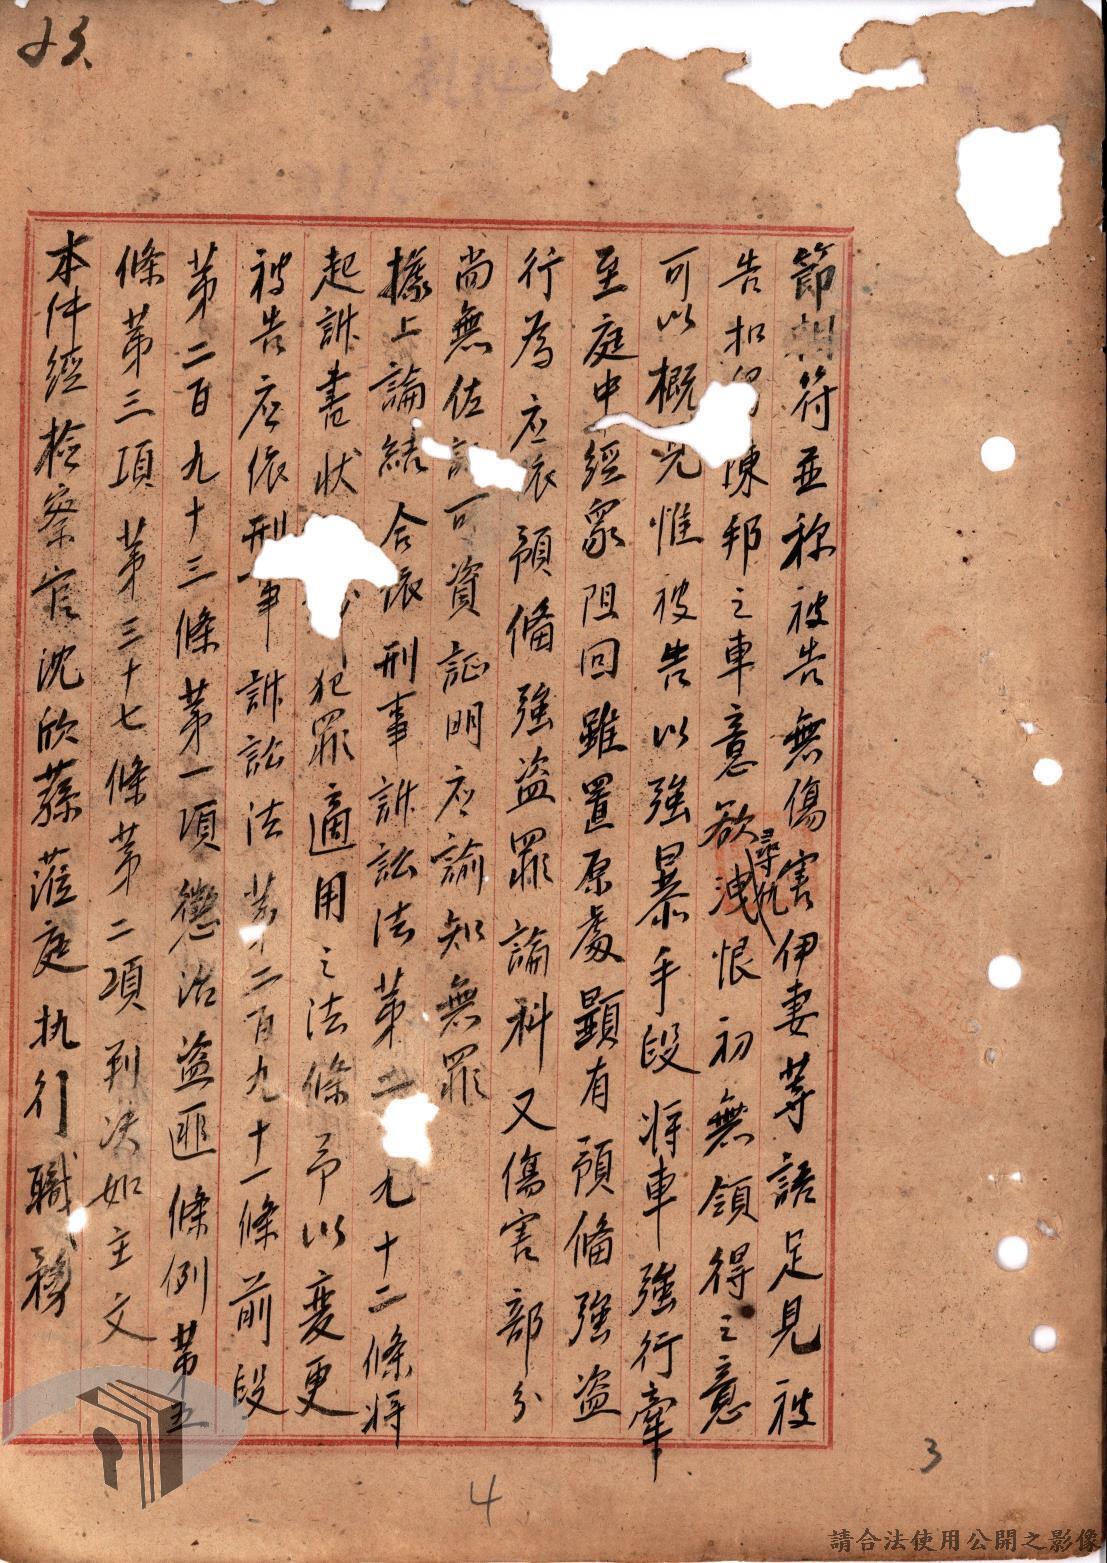 節相符並称被告無傷害伊妻等語足見被
告扣陳邦之車意欲尋仇洩恨初無領得之意
可以概見惟被告以強暴手段将車強行牽
至庭中經眾阻回雖置原處顯有預備強盗
行為应依預備強盗罪論科又傷害部分
尚無佐証可資証明应諭知無罪
據上論結合依刑事訴訟法第二九十二條将
起訴書状犯罪適用之法條予以变更
被告应依刑事訴訟法第二百九十一條前段
第二百九十三條第一項懲治盗匪條例第五
條第三項第三十七條第二項判决如主文
本件經檢察官沈欣蓀蒞庭执行職務
4
3
請合法使用公開之影像